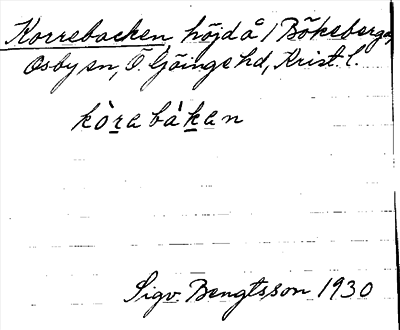 Korrebacken höjd å 1 Bökeberga,
Osby sn, Ö. Göinge hd, Krist. l.
kòrabàkan
Sigv. Bengtsson 1930